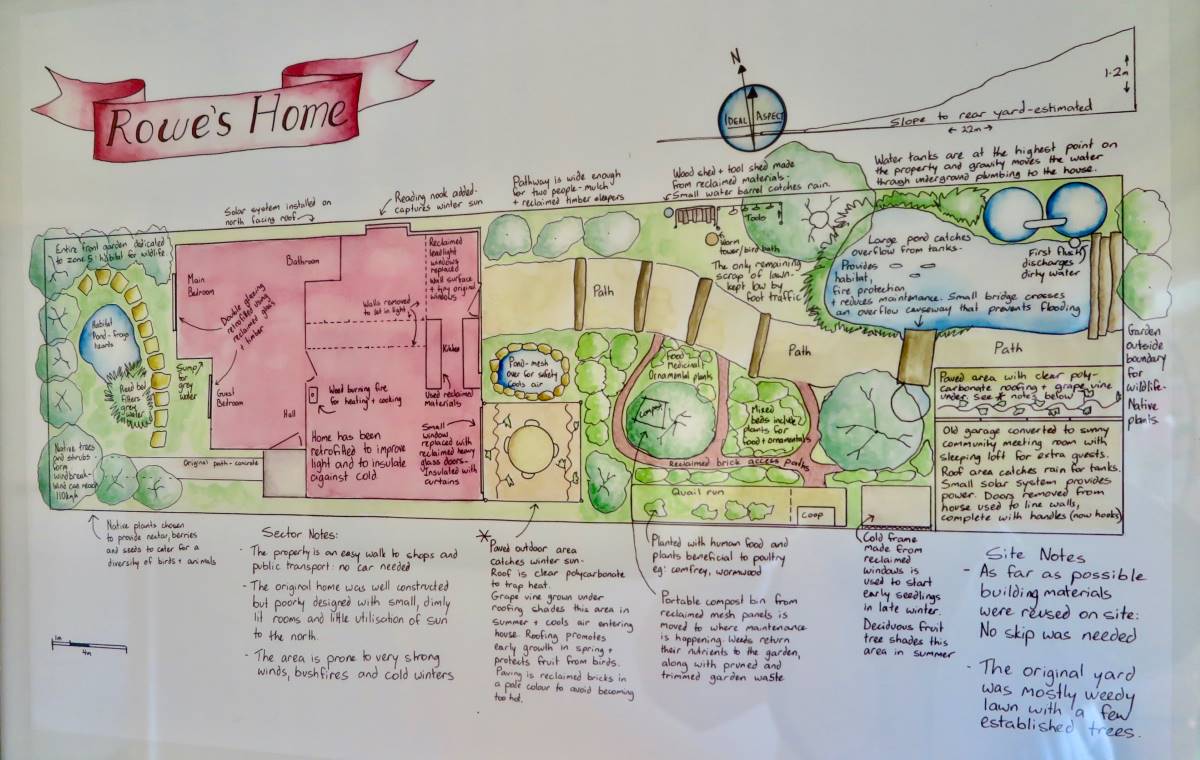 ROWE'S HOME
N
IDEAL ASPECT
1.2m
Slope to rear yard-estimated
← 22m →
Solar system installed on
north facing roof
Reading nook added-
captures winter sun
Pathway is wide enough
for two people-mulch
+ reclaimed timber sleepers
Wood shed + tool shed made
from reclaimed materials-
Small water barrel catches rain.
Water tanks are at the highest point on
the property and gravity moves the water
through underground plumbing to the house.
Entire front garden dedicated
to zone 5: Habitat for wildlife.
Main
Bedroom
Bathroom
Double glazing
retrofitted using
reclaimed glass
+ timber
Habitat
Pond-frogs
lizards
Reed bed
filters
grey
water
Sump
for
grey
water
Guest
Bedroom
Hall
Native trees
and shrubs
form
windbreak-
Wind can reach
110kmph
Original path-concrete
Walls removed
to let in light
Reclaimed
leadlight
windows
replaced
wall surface
+ tiny original
windows
Kitchen
Wood burning fire
for heating + cooking
Used reclaimed
Materials
Home has been
retrofitted to improve
light and to insulate
against cold.
Small
window
replaced with
reclaimed heavy
glass doors-
Insulated with
curtains
Path
Pond-mesh
over for safety
Cools air
Tools
Worm
tower/bird bath
The only remaining
scrap of lawn-
kept low by
foot traffic
Food
Medicinal
Ornamental plants
Compost
Mixed
beds include
plants for
food + ornamentals
Reclaimed brick access paths
Quail run
Coop
Path
Large pond catches
overflow from tanks-
Provides
habitat,
fire protection
+ reduces maintenance. Small bridge crosses
an overflow causeway that prevents flooding
First flush
discharges
dirty water
Path
Garden
outside
boundary
for
wildlife-
Native
plants.
Paved area with clear poly-
carbonate roofing + grape vine
under. See * note below
Old garage converted to sunny
community meeting room with
sleeping loft for extra guests.
Roof area catches rain for tanks.
Small solar system provides
power. Doors removed from
house used to line walls,
complete with handles (now hooks)
Native plants chosen
to provide nectar, berries
and seeds to cater for a
diversity of birds + animals
1m
4m
Sector Notes:
- The property is an easy walk to shops and
public transport: no car needed
- The original home was well constructed
but poorly designed with small, dimly
lit rooms and little utilisation of sun
to the north.
- The area is prone to very strong
winds, bushfires and cold winters
* Paved outdoor area
catches winter sun-
Roof is clear polycarbonate
to trap heat.
Grape vine grown under
roofing shades this area in
summer + cools air entering
house. Roofing promotes
early growth in spring +
protects fruit from birds.
Paving is reclaimed bricks in
a pale colour to avoid becoming
too hot.
Planted with human food and
plants beneficial to poultry
eg: comfrey, wormwood
Portable compost bin from
reclaimed mesh panels is
moved to where maintenance
is happening. Weeds return
their nutrients to the garden,
along with pruned and
trimmed garden waste
Cold frame
made from
reclaimed
windows is
used to start
early seedlings
in late winter.
Deciduous fruit
tree shades this
area in summer
Site Notes
- As far as possible
building materials
were reused on site:
No skip was needed
- The original yard
was mostly weedy
lawn with a few
established trees.